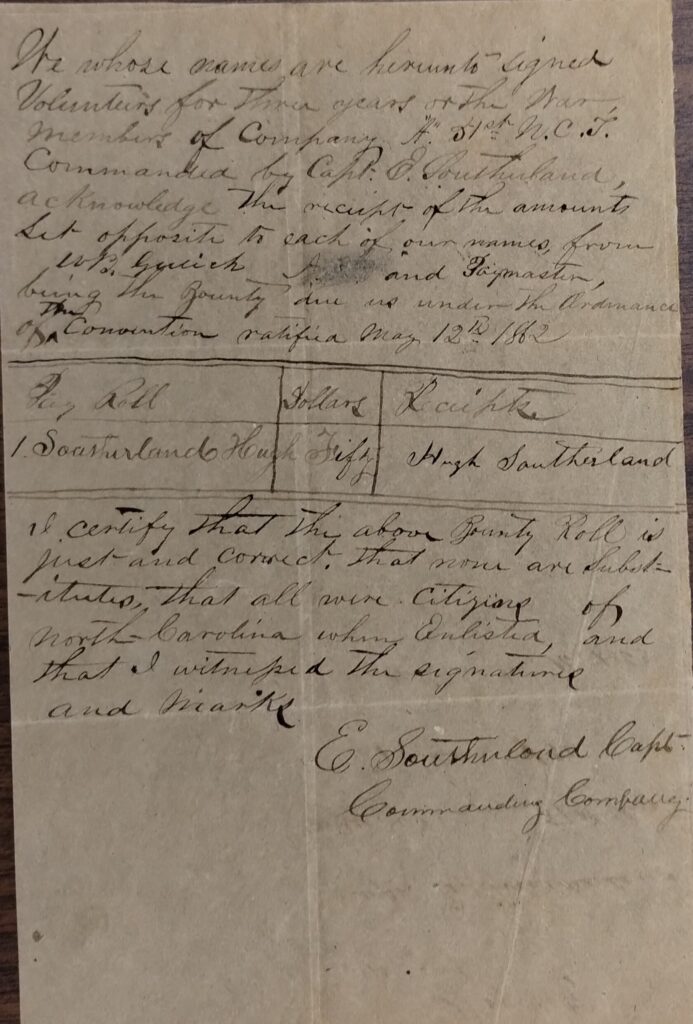 We whose names are hereunto signed
Volunteers for three years or the War,
Members of Company "A" 51st N.C.T.
Commanded by Capt. E. Southerland,
acknowledge the receipt of the amounts
Set opposite to each of our names, from
W.B. Gulick and Paymaster,
being the Bounty due us under the Ordinance
of the Convention ratified May 12th 1862
Pay Roll Dollars Receipts
1 Southerland Hugh Fifty Hugh Southerland
I certify that the above Bounty Roll is
just and correct. that none are Subst-
-itutes, that all were Citizens of
North-Carolina when Enlisted, and
that I witnessed the signatures
and Marks
E. Southerland Capt.
Commanding Company.